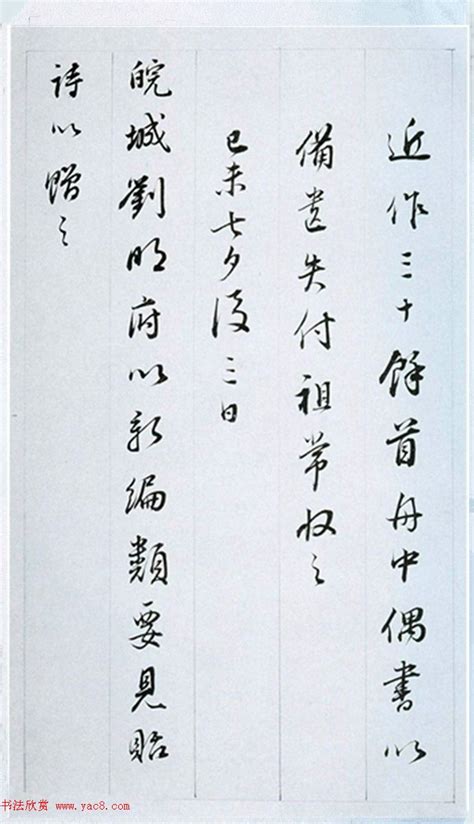 近作三十餘首舟中偶書以
備遺失付祖常收之
己未七夕後三日
皖城劉明府以新編類要見貽
詩以贈之
书法欣赏 www.yac8.com